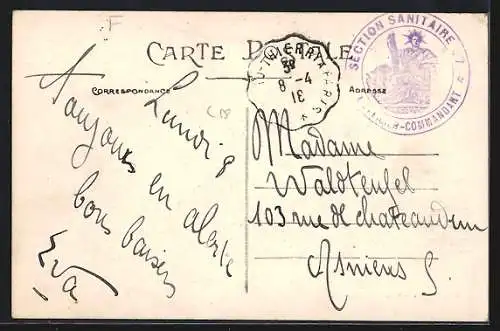 F
CARTE POSTALE
CORRESPONDANCE
ADRESSE
8 - 4
18
PARIS *
SECTION SANITAIRE
COMMANDANT
Lundi 8
Toujours en alerte
bons baisers
Eva
Madame
Waldteufel
103 rue de Chateaudun
Asnieres S.